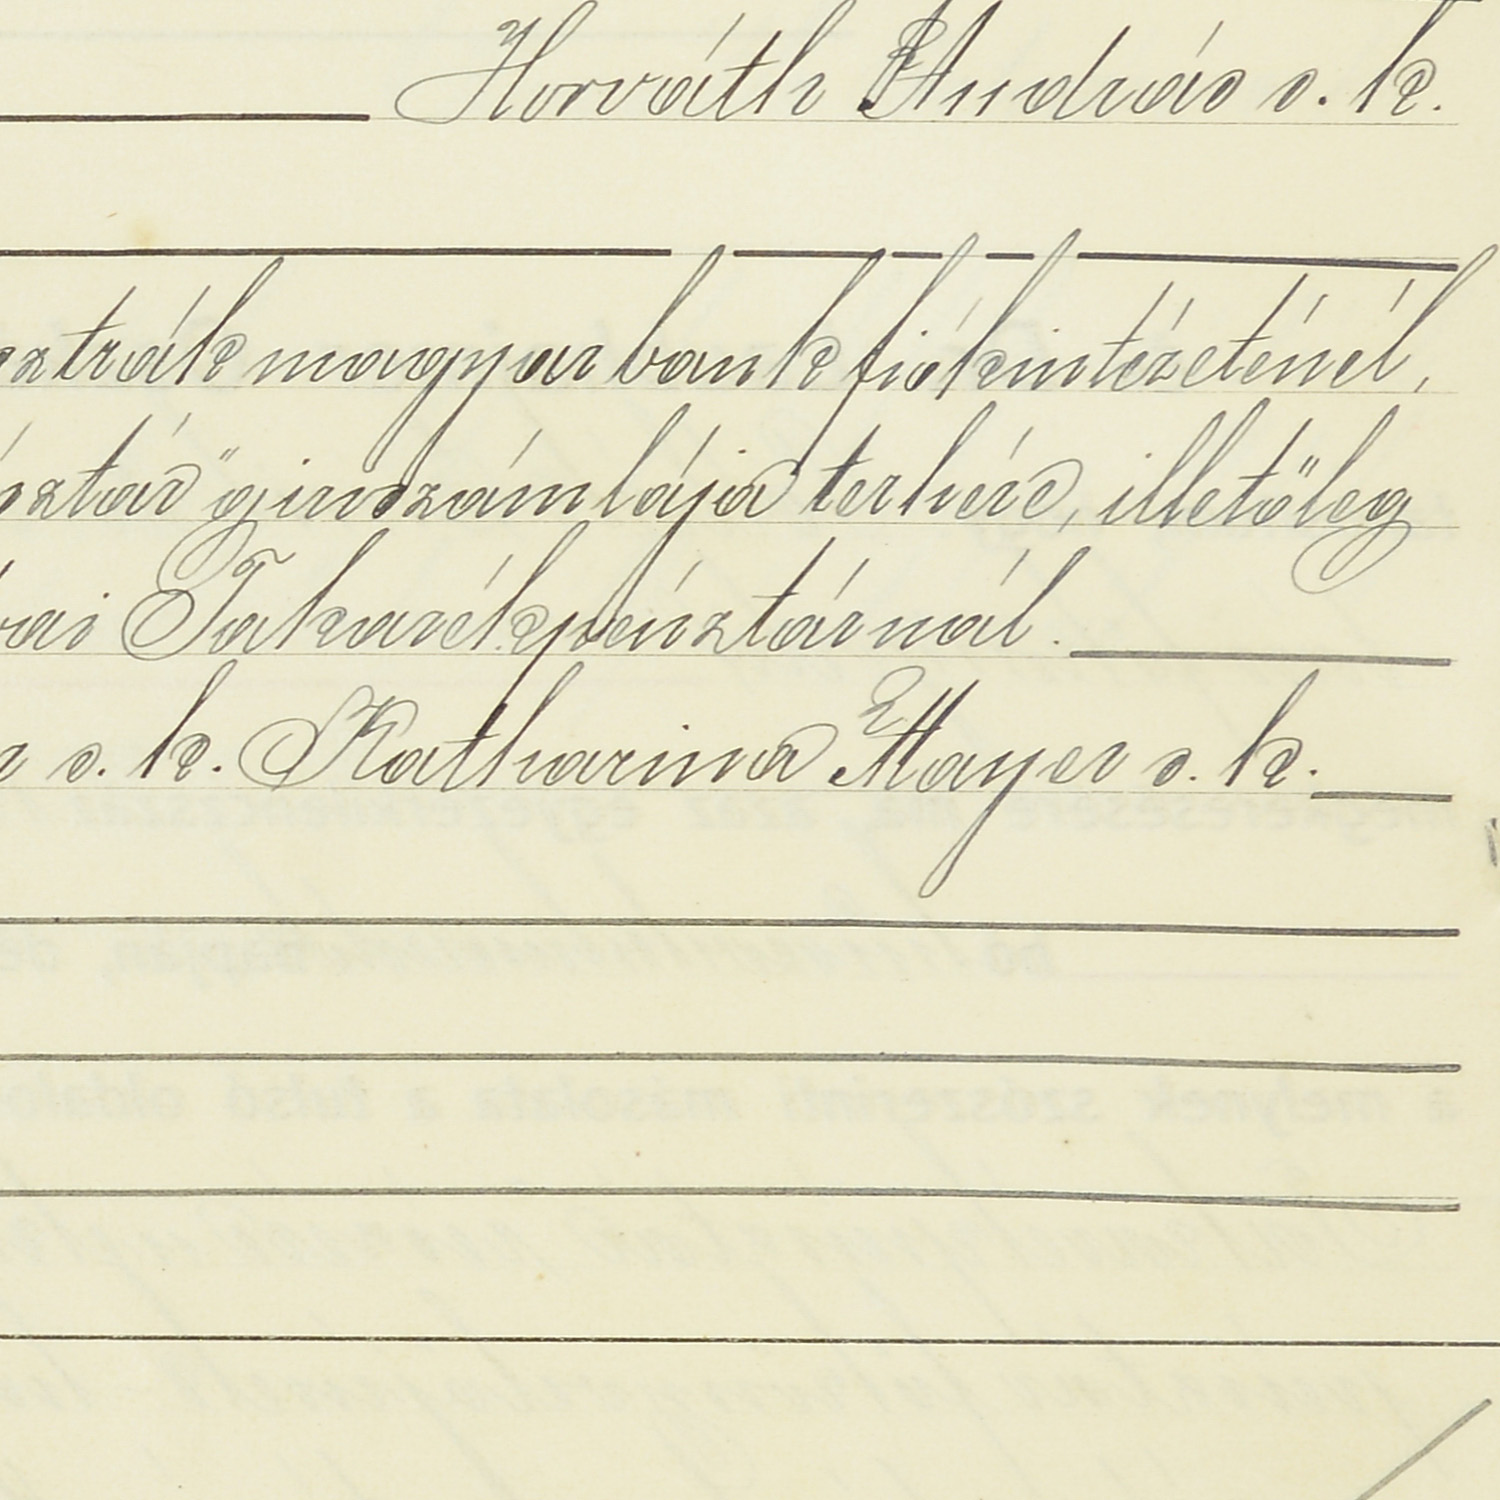 Horváth András s. k.
osztrák magyar bank fiókintézeténél,
pénztár" giroszámlája terhére, illetőleg
vai Takarékpénztárnál.
a s. k. Katharina Mayer s. k.